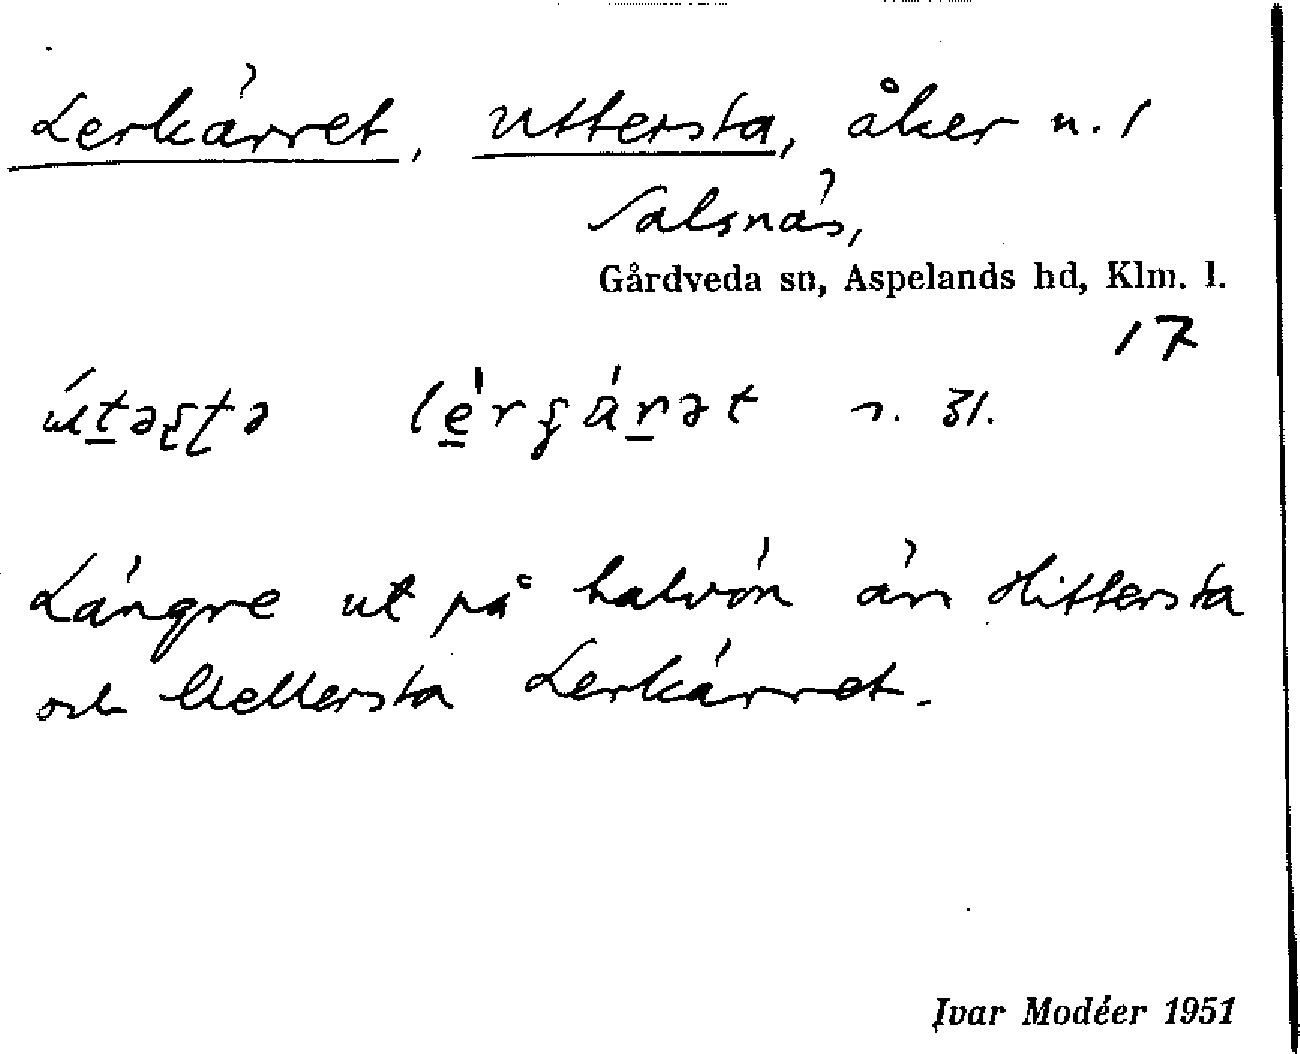 Lerkärret, Uttersta, åker n. 1
Salsnäs,
Gårdveda sn, Aspelands hd, Klm. l.
17
s. 31.
Längre ut på halvön än Hittersta
och Mellersta Lerkärret.
Ivar Modéer 1951